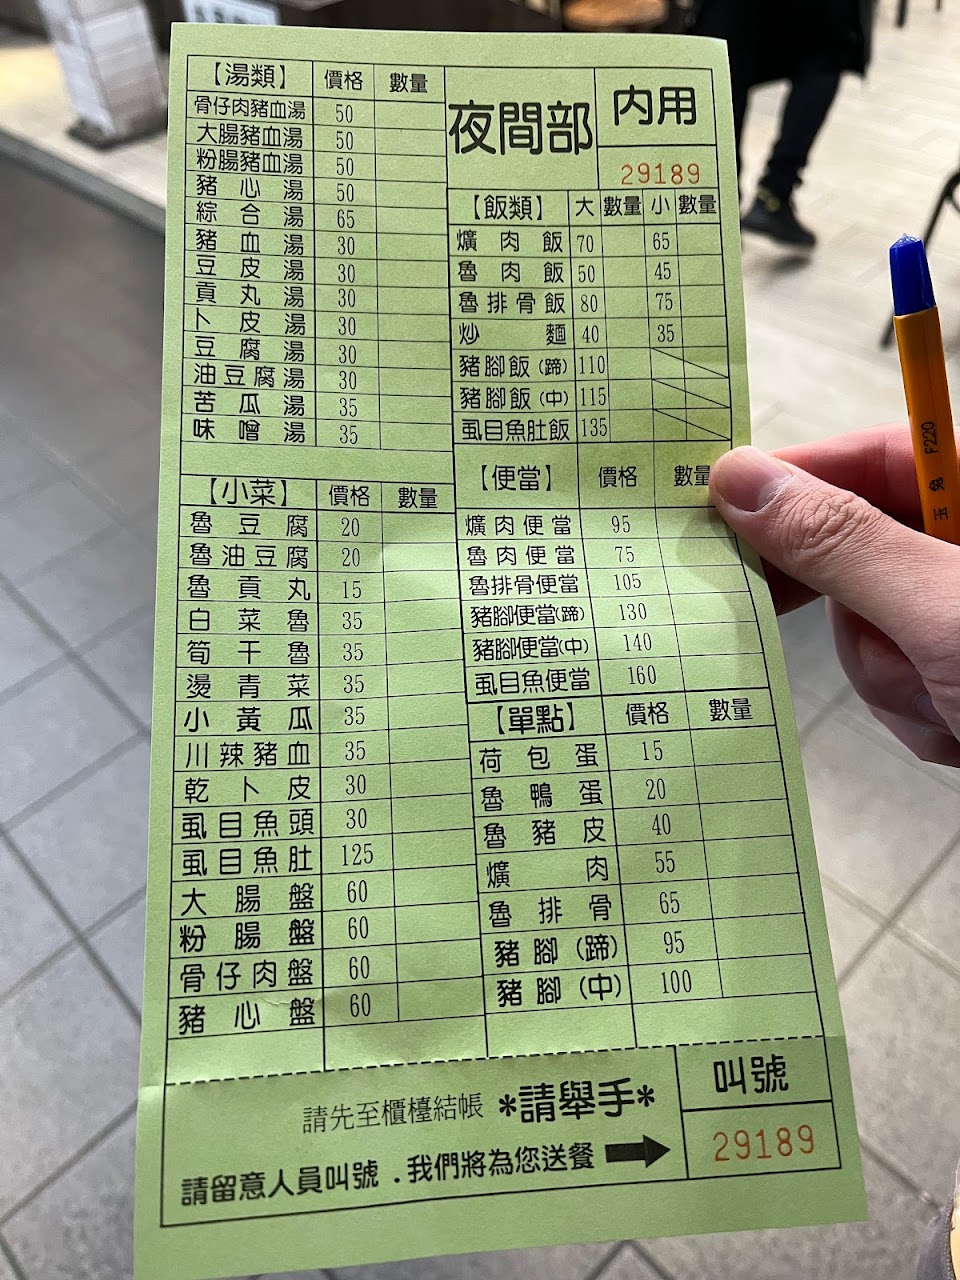 【湯類】 價格 數量
骨仔肉豬血湯 50
大腸豬血湯 50
粉腸豬血湯 50
豬心湯 50
綜合湯 65
豬血湯 30
豆皮湯 30
貢丸湯 30
卜皮湯 30
豆腐湯 30
油豆腐湯 30
苦瓜湯 35
味噌湯 35
【小菜】 價格 數量
魯豆腐 20
魯油豆腐 20
魯貢丸 15
白菜魯 35
筍干魯 35
燙青菜 35
小黃瓜 35
川辣豬血 35
乾卜皮 30
虱目魚頭 30
虱目魚肚 125
大腸盤 60
粉腸盤 60
骨仔肉盤 60
豬心盤 60
夜間部 內用
29189
【飯類】 大 數量 小 數量
爌肉飯 70 65
魯肉飯 50 45
魯排骨飯 80 75
炒麵 40 35
豬腳飯(蹄) 110
豬腳飯(中) 115
虱目魚肚飯 135
【便當】 價格 數量
爌肉便當 95
魯肉便當 75
魯排骨便當 105
豬腳便當(蹄) 130
豬腳便當(中) 140
虱目魚便當 160
【單點】 價格 數量
荷包蛋 15
魯鴨蛋 20
魯豬皮 40
爌肉 55
魯排骨 65
豬腳(蹄) 95
豬腳(中) 100
請先至櫃檯結帳 *請舉手*
請留意人員叫號．我們將為您送餐
叫號
29189
玉兔 F220